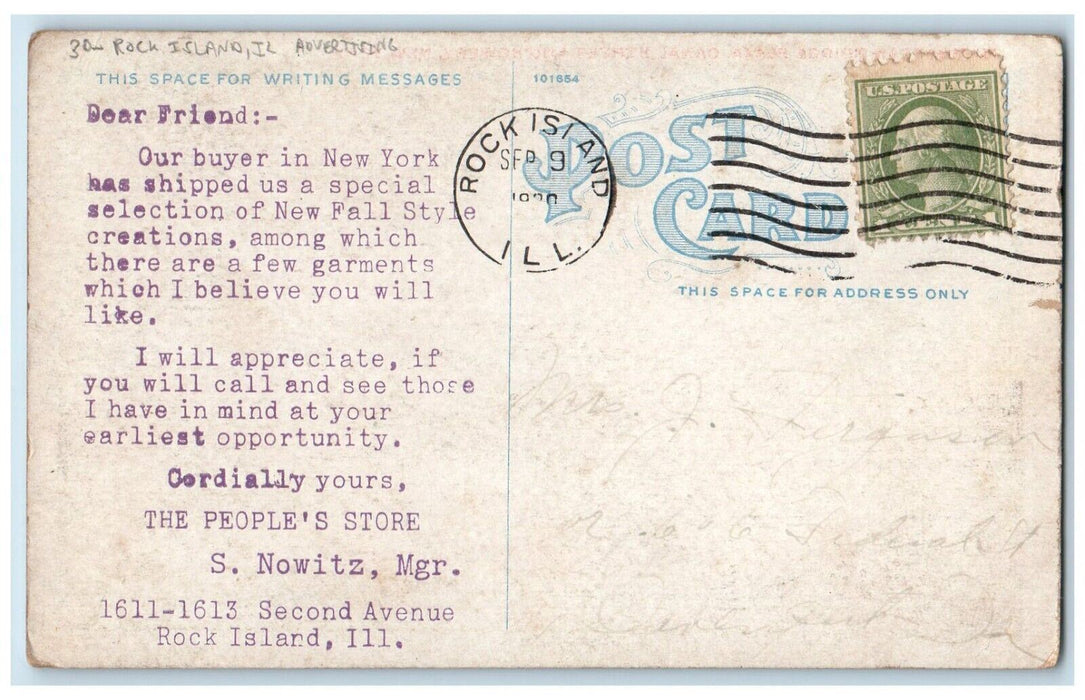 30— ROCK ISLAND, IL ADVERTISING
THIS SPACE FOR WRITING MESSAGES
101654
Dear Friend:-
Our buyer in New York
has shipped us a special
selection of New Fall Style
creations, among which
there are a few garments
which I believe you will
like.
I will appreciate, if
you will call and see those
I have in mind at your
earliest opportunity.
Cordially yours,
THE PEOPLE'S STORE
S. Nowitz, Mgr.
1611-1613 Second Avenue
Rock Island, Ill.
ROCK ISLAND
SEP 9
ILL.
POST
CARD
U.S. POSTAGE
THIS SPACE FOR ADDRESS ONLY
Mrs. J. Ferguson